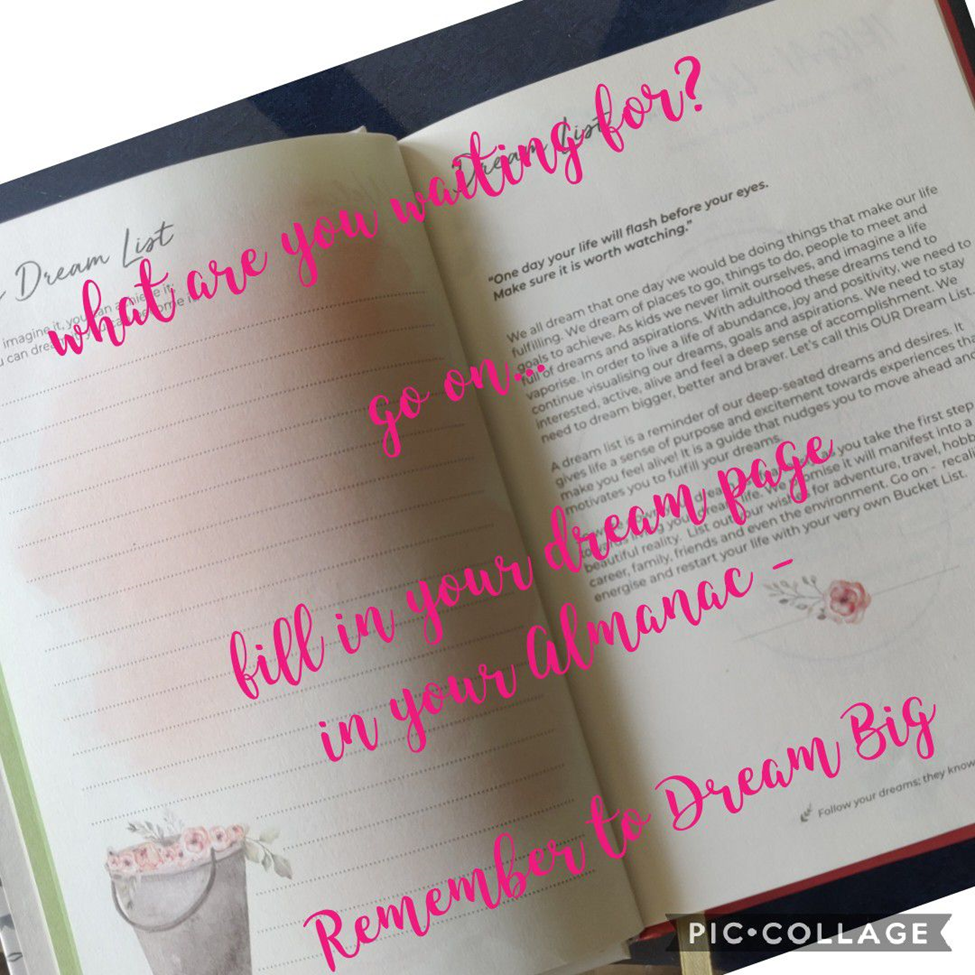 what are you waiting for?
go on...
fill in your dream page
in your Almanac -
Remember to Dream Big
Dream List
imagine it, you can achieve it;
Dream List
"One day your life will flash before your eyes.
Make sure it is worth watching."
We all dream that one day we would be doing things that make our life
fulfilling. We dream of places to go, things to do, people to meet and
goals to achieve. As kids we never limit ourselves, and imagine a life
full of dreams and aspirations. With adulthood these dreams tend to
vaporise. In order to live a life of abundance, joy and positivity, we need to
continue visualising our dreams, goals and aspirations. We need to stay
interested, active, alive and feel a deep sense of accomplishment. We
need to dream bigger, better and braver. Let's call this OUR Dream List.
A dream list is a reminder of our deep-seated dreams and desires. It
gives life a sense of purpose and excitement towards experiences tha
make you feel alive! It is a guide that nudges you to move ahead and
motivates you to fulfill your dreams.
you take the first step
life. We promise it will manifest into a
beautiful reality. List out your wishes for adventure, travel, hobb
career, family, friends and even the environment. Go on - recali
energise and restart your life with your very own Bucket List.
Follow your dreams; they know
PIC•COLLAGE